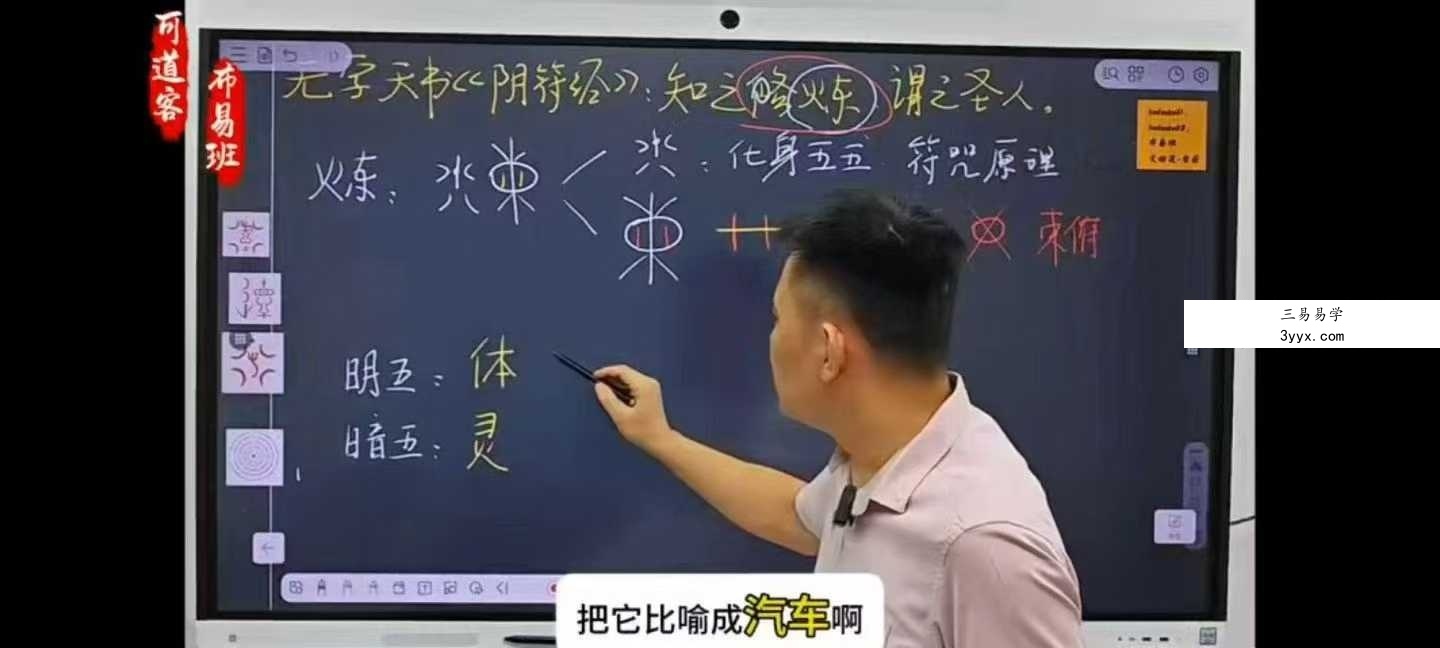 可道客
布易班
无字天书《阴符经》：知之修炼 谓之圣人。
火炼：
：化身五五 符咒原理
束俯
明五：体
暗五：灵
三易易学
3yyx.com
把它比喻成汽车啊